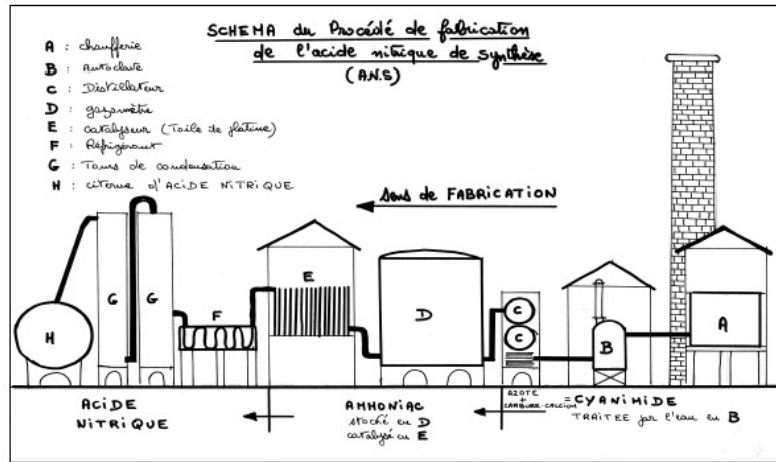 SCHEMA du Procédé de fabrication
de l'acide nitrique de synthèse
(A.N.S)
A : chaufferie
B : Autoclave
C : Distillateur
D : gazomètre
E : catalyseur (Toile de platine)
F : Réfrigérant
G : Tours de condensation
H : citerne d'ACIDE NITRIQUE
sens de FABRICATION
H
G
G
F
E
D
C
C
B
A
ACIDE
NITRIQUE
AMMONIAC
stocké en D
catalysé en E
AZOTE
+
CARBURE-CALCIUM
= CYANIMIDE
TRAITEE par l'eau en B